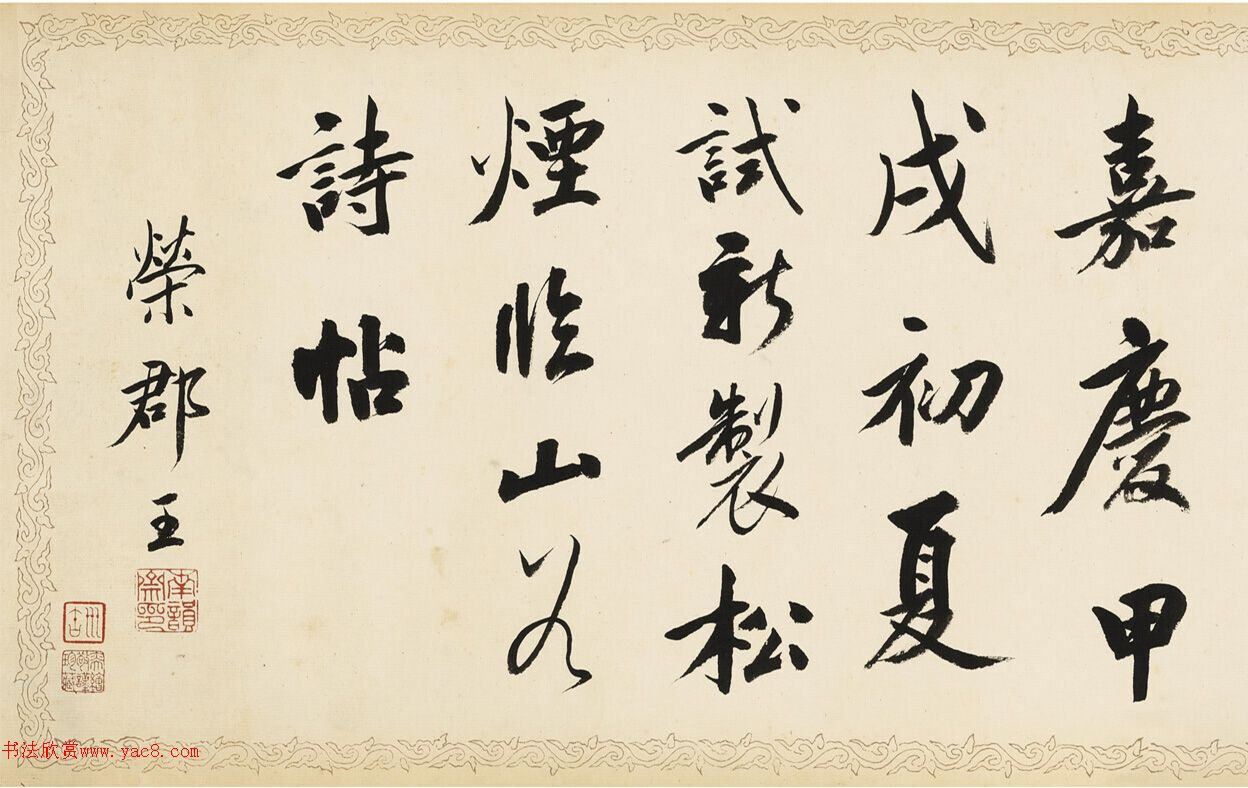 嘉慶甲
戌初夏
試新製松
煙臨山谷
詩帖
榮郡王
书法欣赏www.yac8.com